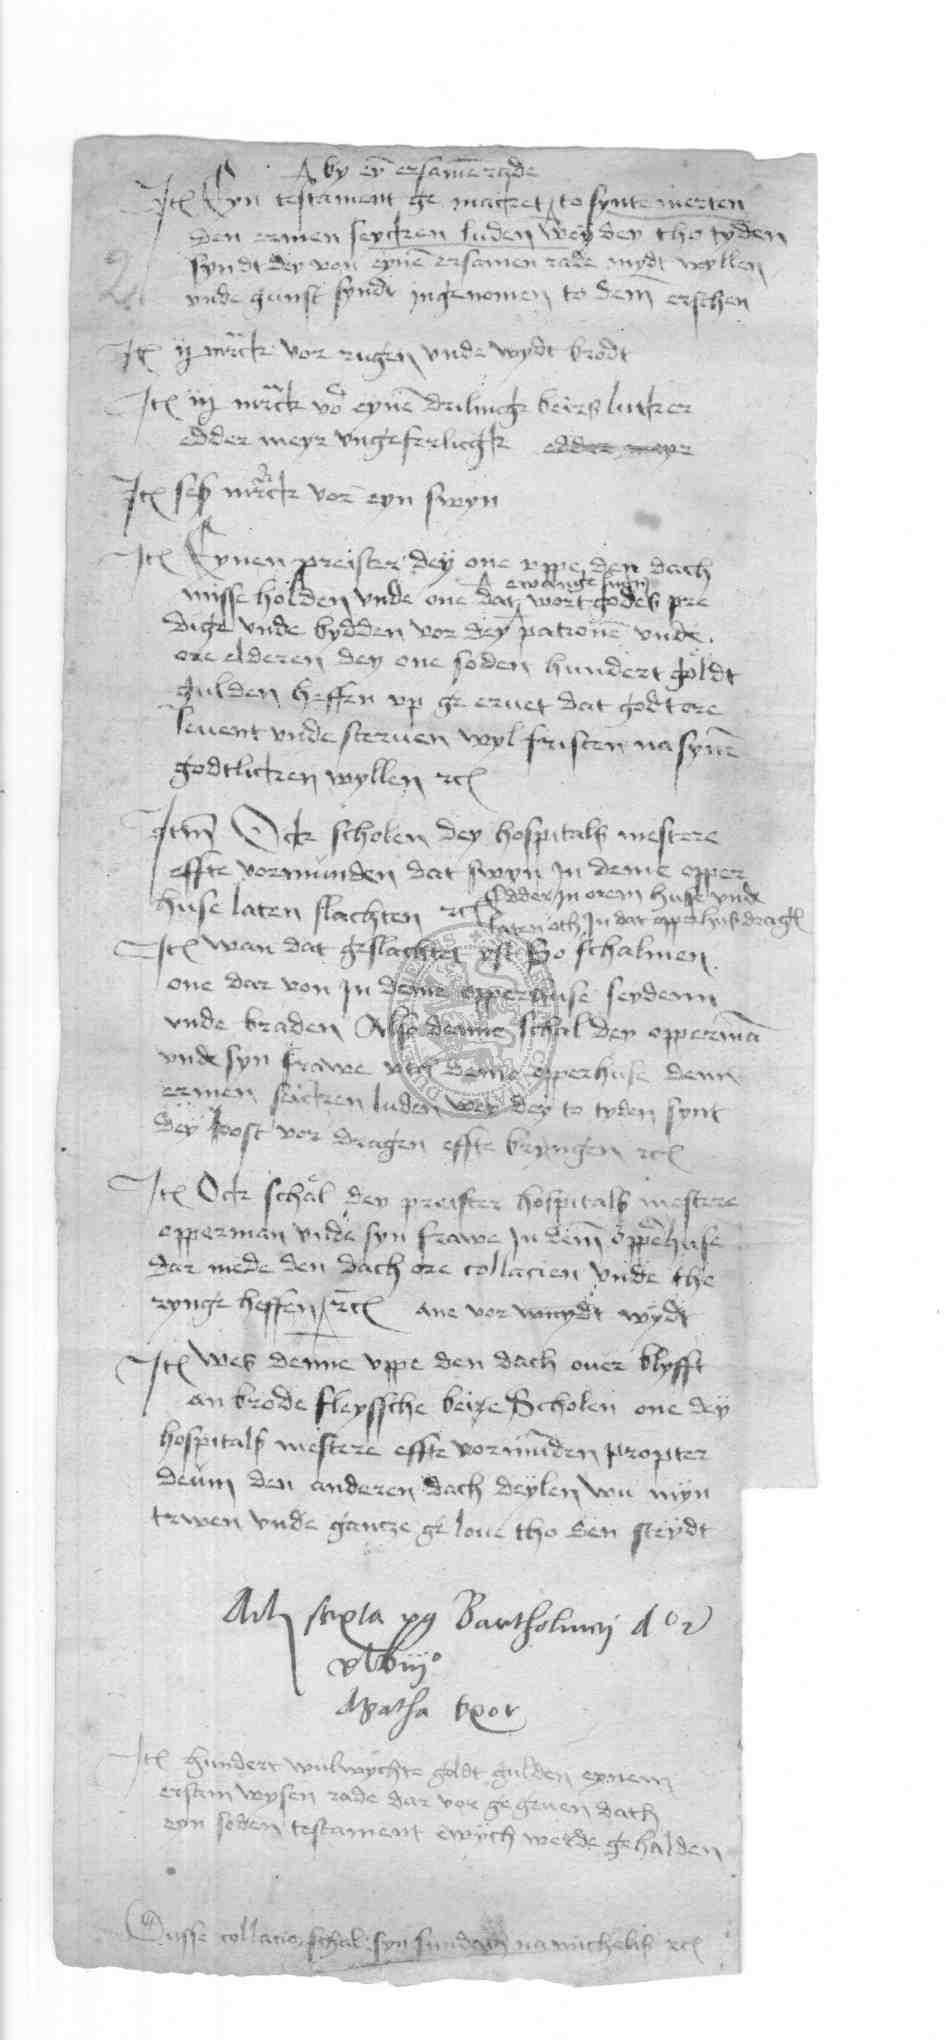 by eyn ersame rade
Itē Eyn testament ge macket to synte merten
den ermen seycken luden wey dey tho tyden
syndt dey von eynē ersamen rade mydt wyllen
vnde gunst syndt ingenomen to dem erschen
Itē ij marck vor rugen vnde wydt brodt
Itē iij marck vor eynē drilingk beirs lutker
edder meyr vngeferlick edder meyr
Itē seß marck vor eyn swyn
Itē Eynen preister dey one vppe den dach
ewangelium
misse holden vnde one dat wort godes pre
dige vnde bydden vor dey patronē vnde
ore elderen dey one soden hundert goldt
gulden heffen vp ge eruet dat godt ore
leuent vnde steruen wyl fristen na synē
godtlicken wyllen rc
Itm Ock scholen dey hospitals mestere
effte vormunden dat swyn In deme opper
huse laten slachten rc Edder In orem huse vnde
laten oth In dat opperhus dragē
Itē wan dat geslachtet yst So schalmen
one dar von In deme opperhuse seydenn
vnde braden Also denne schal dey oppermā
vnde syn frawe vth deme opperhuse denn
ermen seicken luden wey dey to tyden synt
dey kost vor dragen effte bryngen rc
Itē Ock schal dey preister hospitals mestere
opperman vnde syn frawe In dem opperhuse
dar mede den dach ore collacien vnde the
rynge heffen rc ane vor wydt
Itē wes denne vppe den dach ouer blyfft
an brode fleyssche beire Scholen one dey
hospitals mestere effte vormunden propter
deum den anderen dach deylen wu myn
trwen vnde gantze geloue tho den steydt
sexta Bartholmej
Agatha vxor
Itē hundert wulwychte goldt gulden eynem
ersam wysen rade dar vor gegeuen dath
eyn soden testament ewych werde gehalden
Dusse collacio schal syn sundach na michelis rc